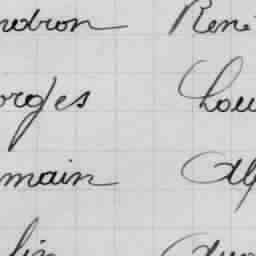 ndron René
orges Lou
main Alf
lin